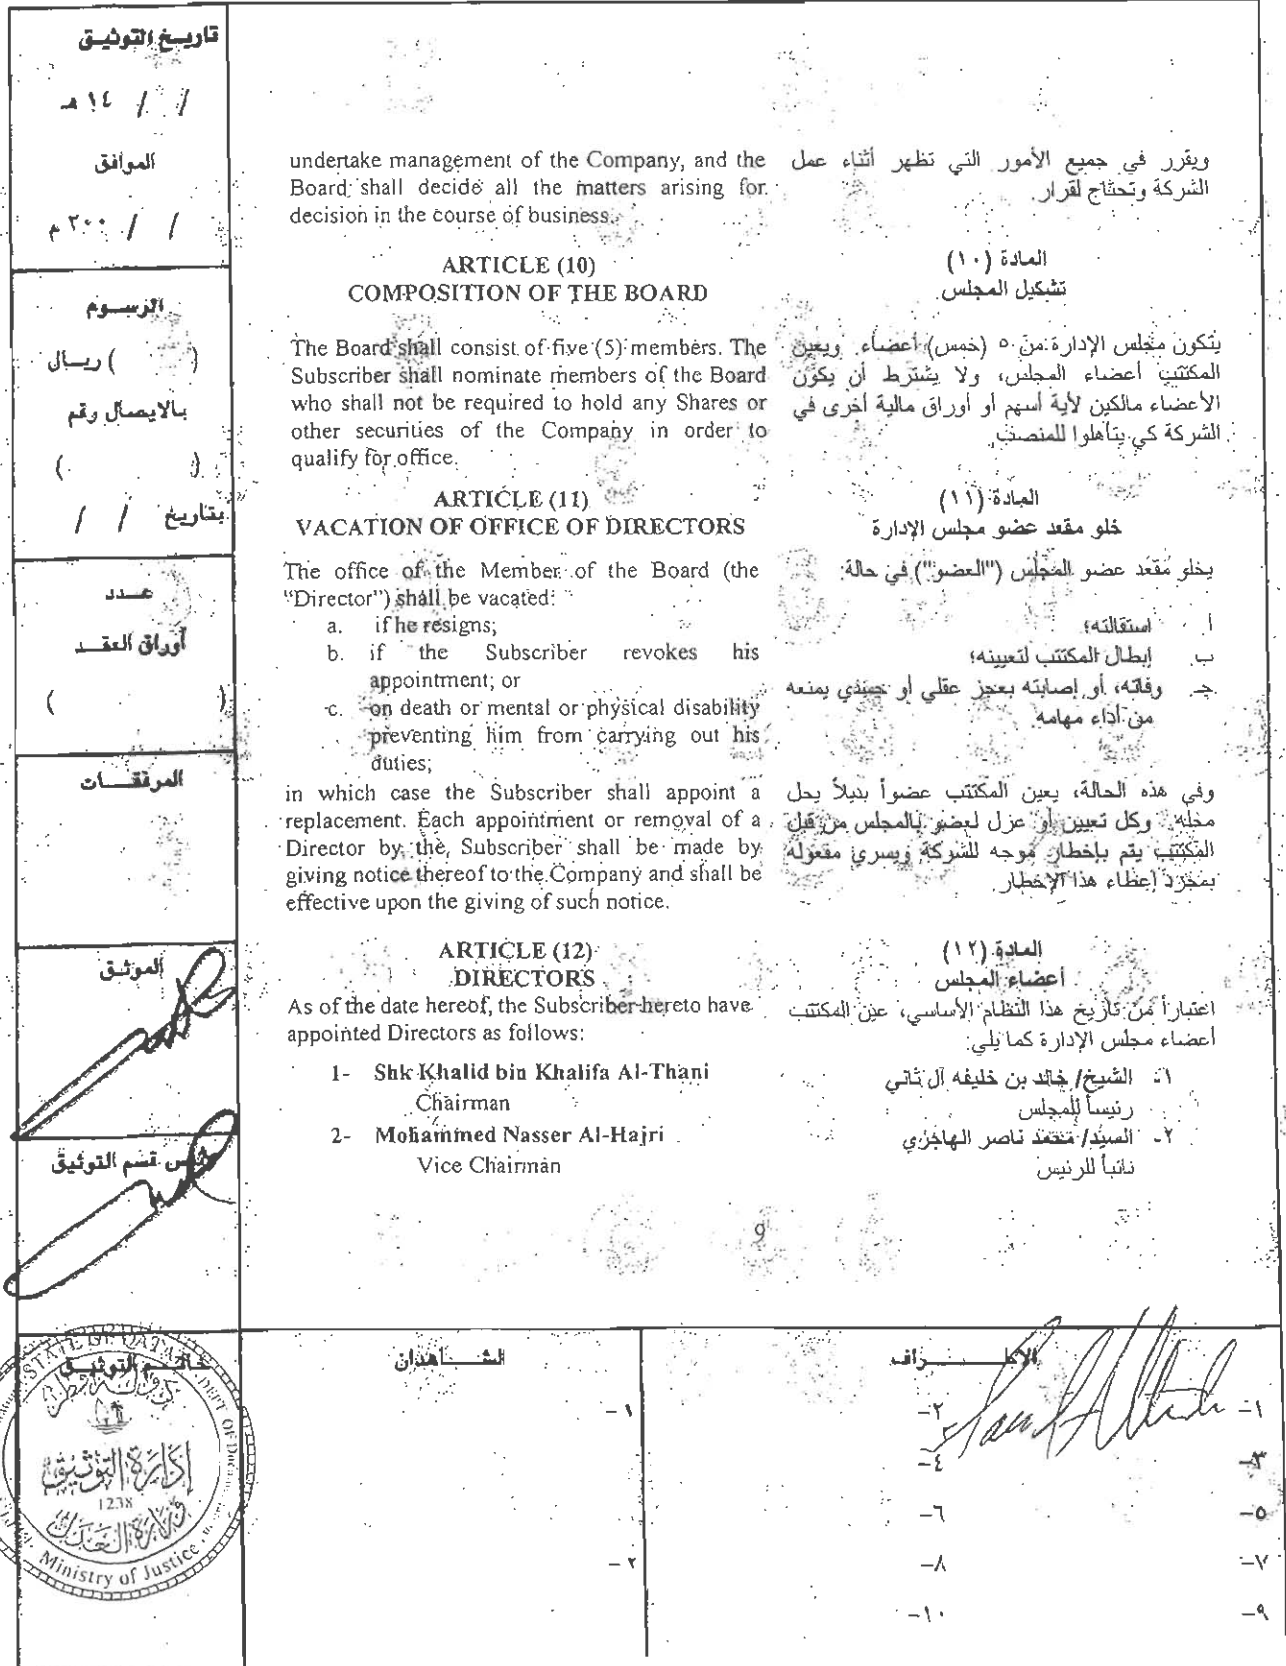 تاريخ التوثيق
/ / ١٤ هـ
الموافق
/ / ٢٠٠ م
الرسوم
( ) ريال
بالايصال رقم
( )
بتاريخ / /
عدد
أوراق العقد
( )
المرفقات
الموثق
قسم التوثيق
undertake management of the Company, and the
Board shall decide all the matters arising for
decision in the course of business.
ARTICLE (10)
COMPOSITION OF THE BOARD
The Board shall consist of five (5) members. The
Subscriber shall nominate members of the Board
who shall not be required to hold any Shares or
other securities of the Company in order to
qualify for office.
ARTICLE (11)
VACATION OF OFFICE OF DIRECTORS
The office of the Member of the Board (the
"Director") shall be vacated:
a. if he resigns;
b. if the Subscriber revokes his
appointment; or
c. on death or mental or physical disability
preventing him from carrying out his
duties;
in which case the Subscriber shall appoint a
replacement. Each appointment or removal of a
Director by the, Subscriber shall be made by
giving notice thereof to the Company and shall be
effective upon the giving of such notice.
ARTICLE (12)
DIRECTORS
As of the date hereof, the Subscriber hereto have
appointed Directors as follows:
1- Shk Khalid bin Khalifa Al-Thani
Chairman
2- Mohammed Nasser Al-Hajri
Vice Chairman
ويقرر في جميع الأمور التي تظهر أثناء عمل
الشركة وتحتاج لقرار.
المادة (١٠)
تشكيل المجلس
يتكون مجلس الإدارة من ٥ (خمس) أعضاء. ويعين
المكتتب أعضاء المجلس، ولا يشترط أن يكون
الأعضاء مالكين لأية أسهم أو أوراق مالية أخرى في
الشركة كي يتأهلوا للمنصب.
المادة (١١)
خلو مقعد عضو مجلس الإدارة
يخلو مقعد عضو المجلس ("العضو") في حالة:
أ. استقالته؛
ب. إبطال المكتتب لتعيينه؛
جـ. وفاته، أو إصابته بعجز عقلي أو جسدي يمنعه
من أداء مهامه.
وفي هذه الحالة، يعين المكتتب عضواً بديلاً يحل
محله. وكل تعيين أو عزل لعضو بالمجلس من قبل
المكتتب يتم بإخطار موجه للشركة ويسري مفعوله
بمجرد إعطاء هذا الإخطار.
المادة (١٢)
أعضاء المجلس
اعتباراً من تاريخ هذا النظام الأساسي، عين المكتتب
أعضاء مجلس الإدارة كما يلي:
١- الشيخ/ خالد بن خليفه آل ثاني
رئيساً للمجلس
٢- السيد/ محمد ناصر الهاجري
نائباً للرئيس
9
خاتم التوثيق
STATE OF QATAR
دولة قطر
إدارة التوثيق
1238
وزارة العدل
Ministry of Justice
الشاهدان
١-
٢-
الاطراف
١- ٢-
٣- ٤-
٥- ٦-
٧- ٨-
٩- ١٠-